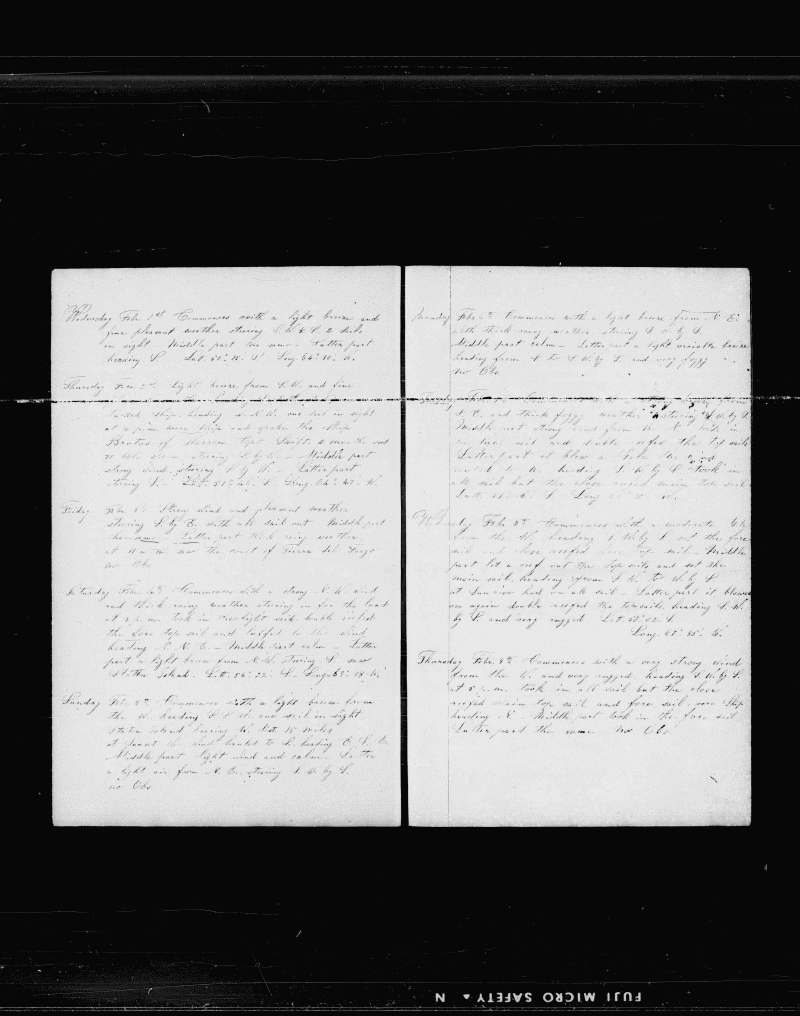 Wednesday Feb. 1st Commences with a light breeze and
fine pleasant weather steering S.W. & S. 2 sails
in sight Middle part the same. Latter part
heading S. Lat. 52°. 15. S. Long. 64°. 30. W.
Thursday Feb. 2nd Light breeze from S.W. and fine
ship heading S.S.W. one sail in sight
at 2 p.m. wore ship and spoke the Ship
Brutus of Warren Capt. Swift 2 months out
steering S by W. Middle part
strong wind steering S by W. Latter part
steering S. Lat. 53° Long. 64°. 47. W.
Friday Feb. 3d Strong wind and pleasant weather
steering S by E. with all sail out Middle part
the same Latter part thick rainy weather
at 11 a.m. saw the coast of Tierra del Fuego
no Obs
Saturday Feb. 4th Commences with a strong N.W. wind
and thick rainy weather steering in for the land
at 2 p.m. took in the light sail double reefed
the fore top sail and luffed to the wind
heading N.N.E. Middle part calm. Latter
part a light breeze from N.W. steering S. saw
Staten Island. Lat. 54°. 22. S. Long. 63°. 08. W.
Sunday Feb. 5th Commences with a light breeze from
the W. heading S.S.W. one sail in sight
Staten Island bearing W. dist. 15 miles
at sunset the wind hauled to S. heading E.S.E.
Middle part light wind and calm. Latter
a light air from N.E. steering S.W. by S.
no Obs
Monday Feb. 6th Commences with a light breeze from N.E.
with thick rainy weather steering S.W. by S.
Middle part calm. Latter part a light variable breeze
heading from S. to S.W. by S. and very foggy
no Obs
Tuesday Feb. 7th Commences with a strong breeze from
N.E. and thick foggy weather steering S.W. by S.
Middle part strong wind from the N. took in
sail and double reefed the top sails
Latter part it blew a Gale the wind
hauled to W. heading S.W. by S. took in
all sail but the close reefed main top sail
Lat. Long. W.
Wednesday Feb. 8th Commences with a moderate Gale
from the W. heading S.W. by S. set the fore
sail and close reefed fore top sail. Middle
part let a reef out the top sails and set the
main sail, heading from S.W. to W. by S.
at Sunrise had on all sail. Latter part it blows
on again double reefed the topsails, heading S.W.
by S. and very rugged Lat. 58°. 02. S.
Long. 65°. 55. W.
Thursday Feb. 9th Commences with a very strong wind
from the W. and very rugged, heading S.W. by S.
at 5 p.m. took in all sail but the close
reefed main top sail and fore sail, wore Ship
heading N. Middle part took in the fore sail
Latter part the same. no Obs
FUJI MICRO SAFETY ▲ N